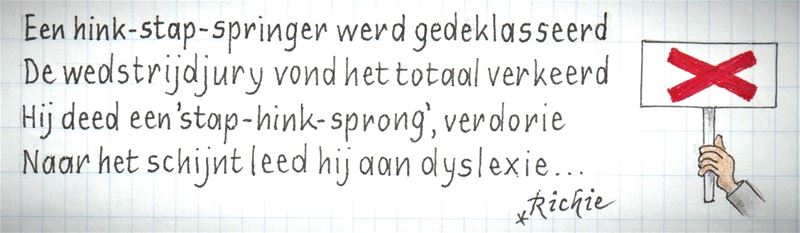 Een hink-stap-springer werd gedeklasseerd
De wedstrijdjury vond het totaal verkeerd
Hij deed een 'stap-hink-sprong', verdorie
Naar het schijnt leed hij aan dyslexie...
*Richie